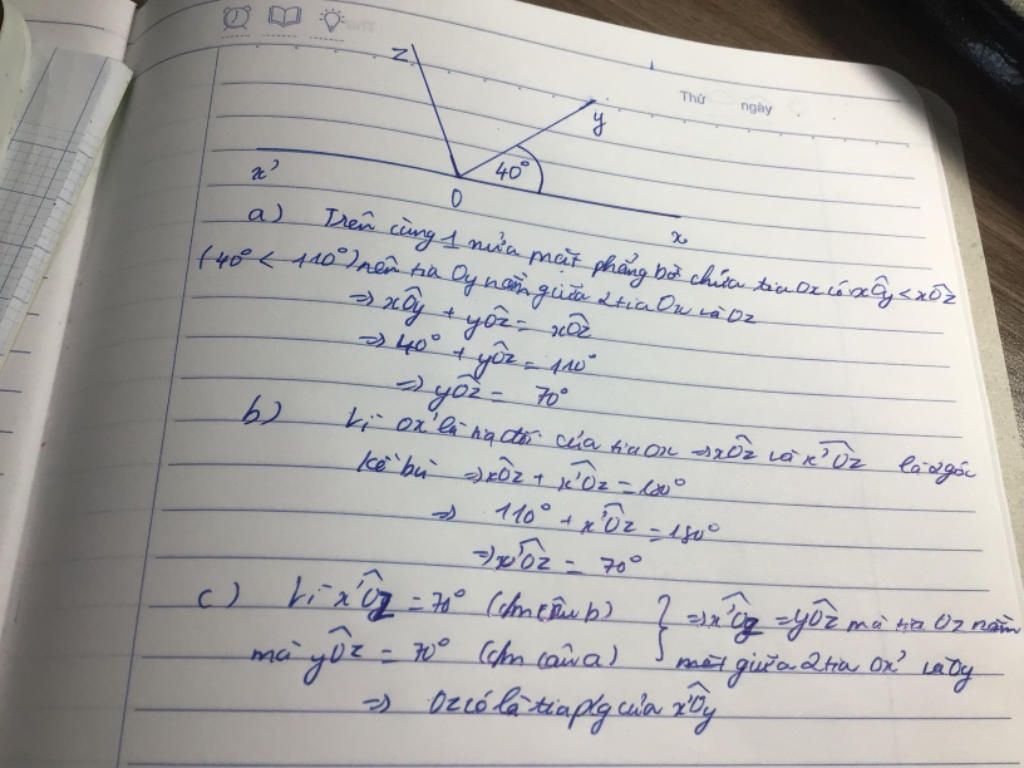 Thứ ngày
z
y
40°
x'
O
x
a) Trên cùng 1 nửa mặt phẳng bờ chứa tia Ox có xÔy < xÔz
(40° < 110°) nên tia Oy nằm giữa 2 tia Ox và Oz
=> xÔy + yÔz = xÔz
=> 40° + yÔz = 110°
=> yÔz = 70°
b) Vì Ox' là tia đối của tia Ox => xÔz và x'Ôz là 2 góc
kề bù => xÔz + x'Ôz = 180°
=> 110° + x'Ôz = 180°
=> x'Ôz = 70°
c) Vì x'Ôz = 70° (cm câu b) } => x'Ôz = yÔz mà tia Oz nằm
mà yÔz = 70° (cm câu a) giữa 2 tia Ox' và Oy
=> Oz có là tia p/g của x'Ôy